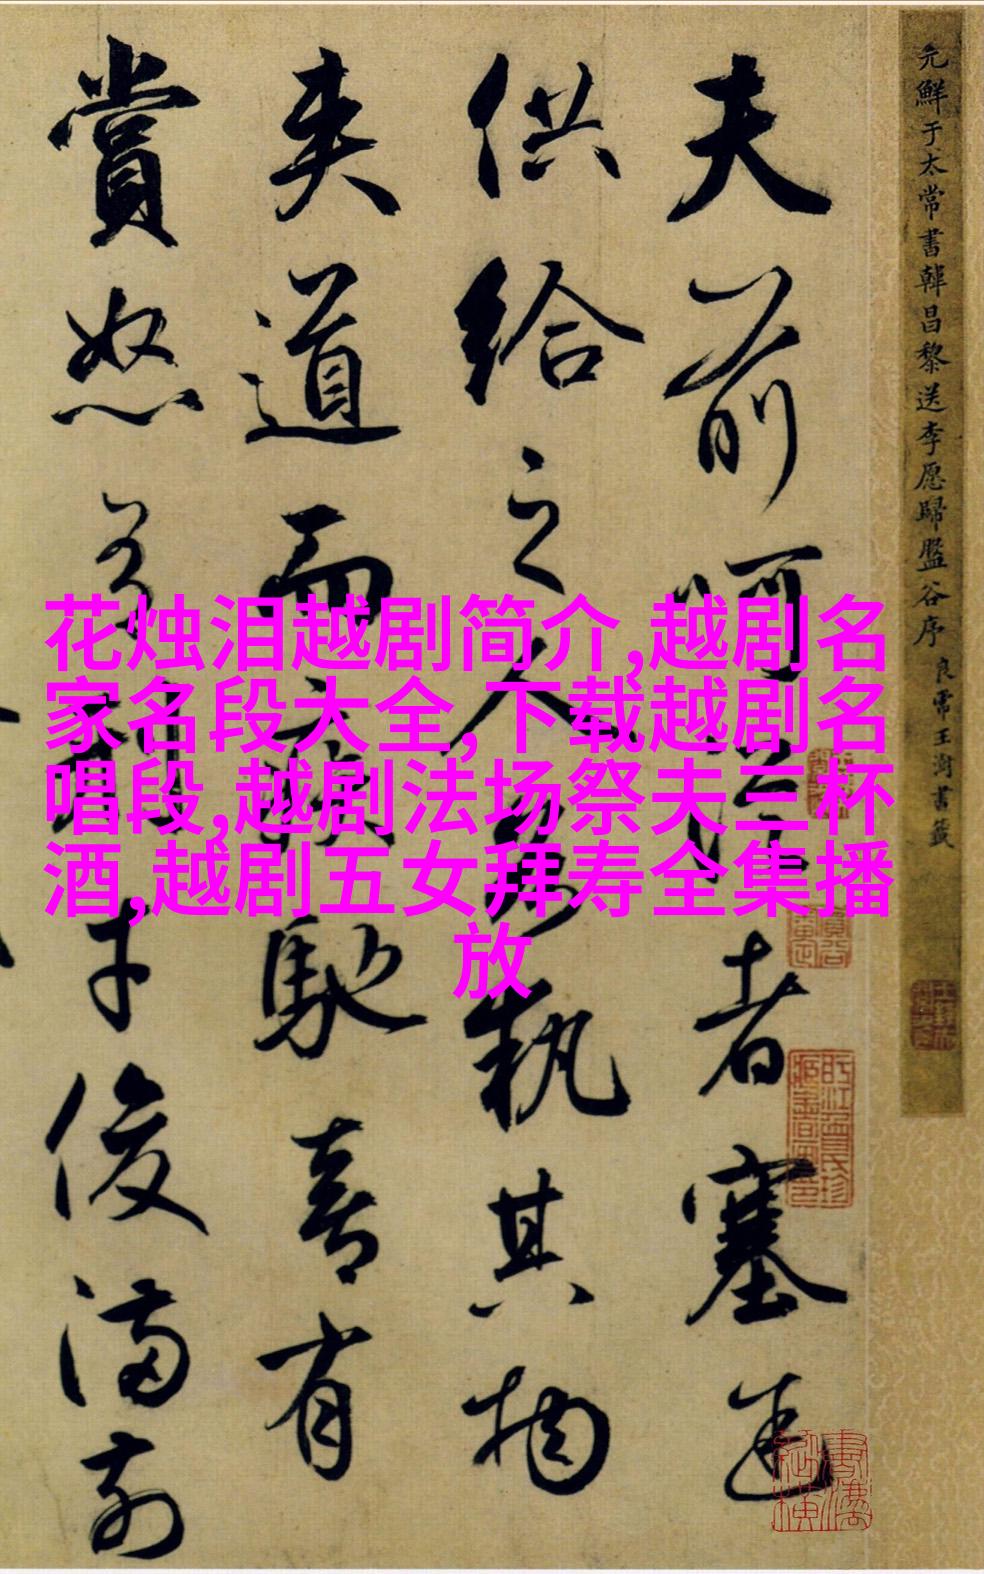 花烛泪越剧简介,越剧名
家名段大全,下载越剧名
唱段,越剧法场祭夫三杯
酒,越剧五女拜寿全集播
放
元鮮于太常書韓昌黎送李愿歸盤谷序 良常王澍書籤
夫前呵從者塞途
供給之人各執其物
夾道而疾馳喜有
賞怒有刑才俊滿前